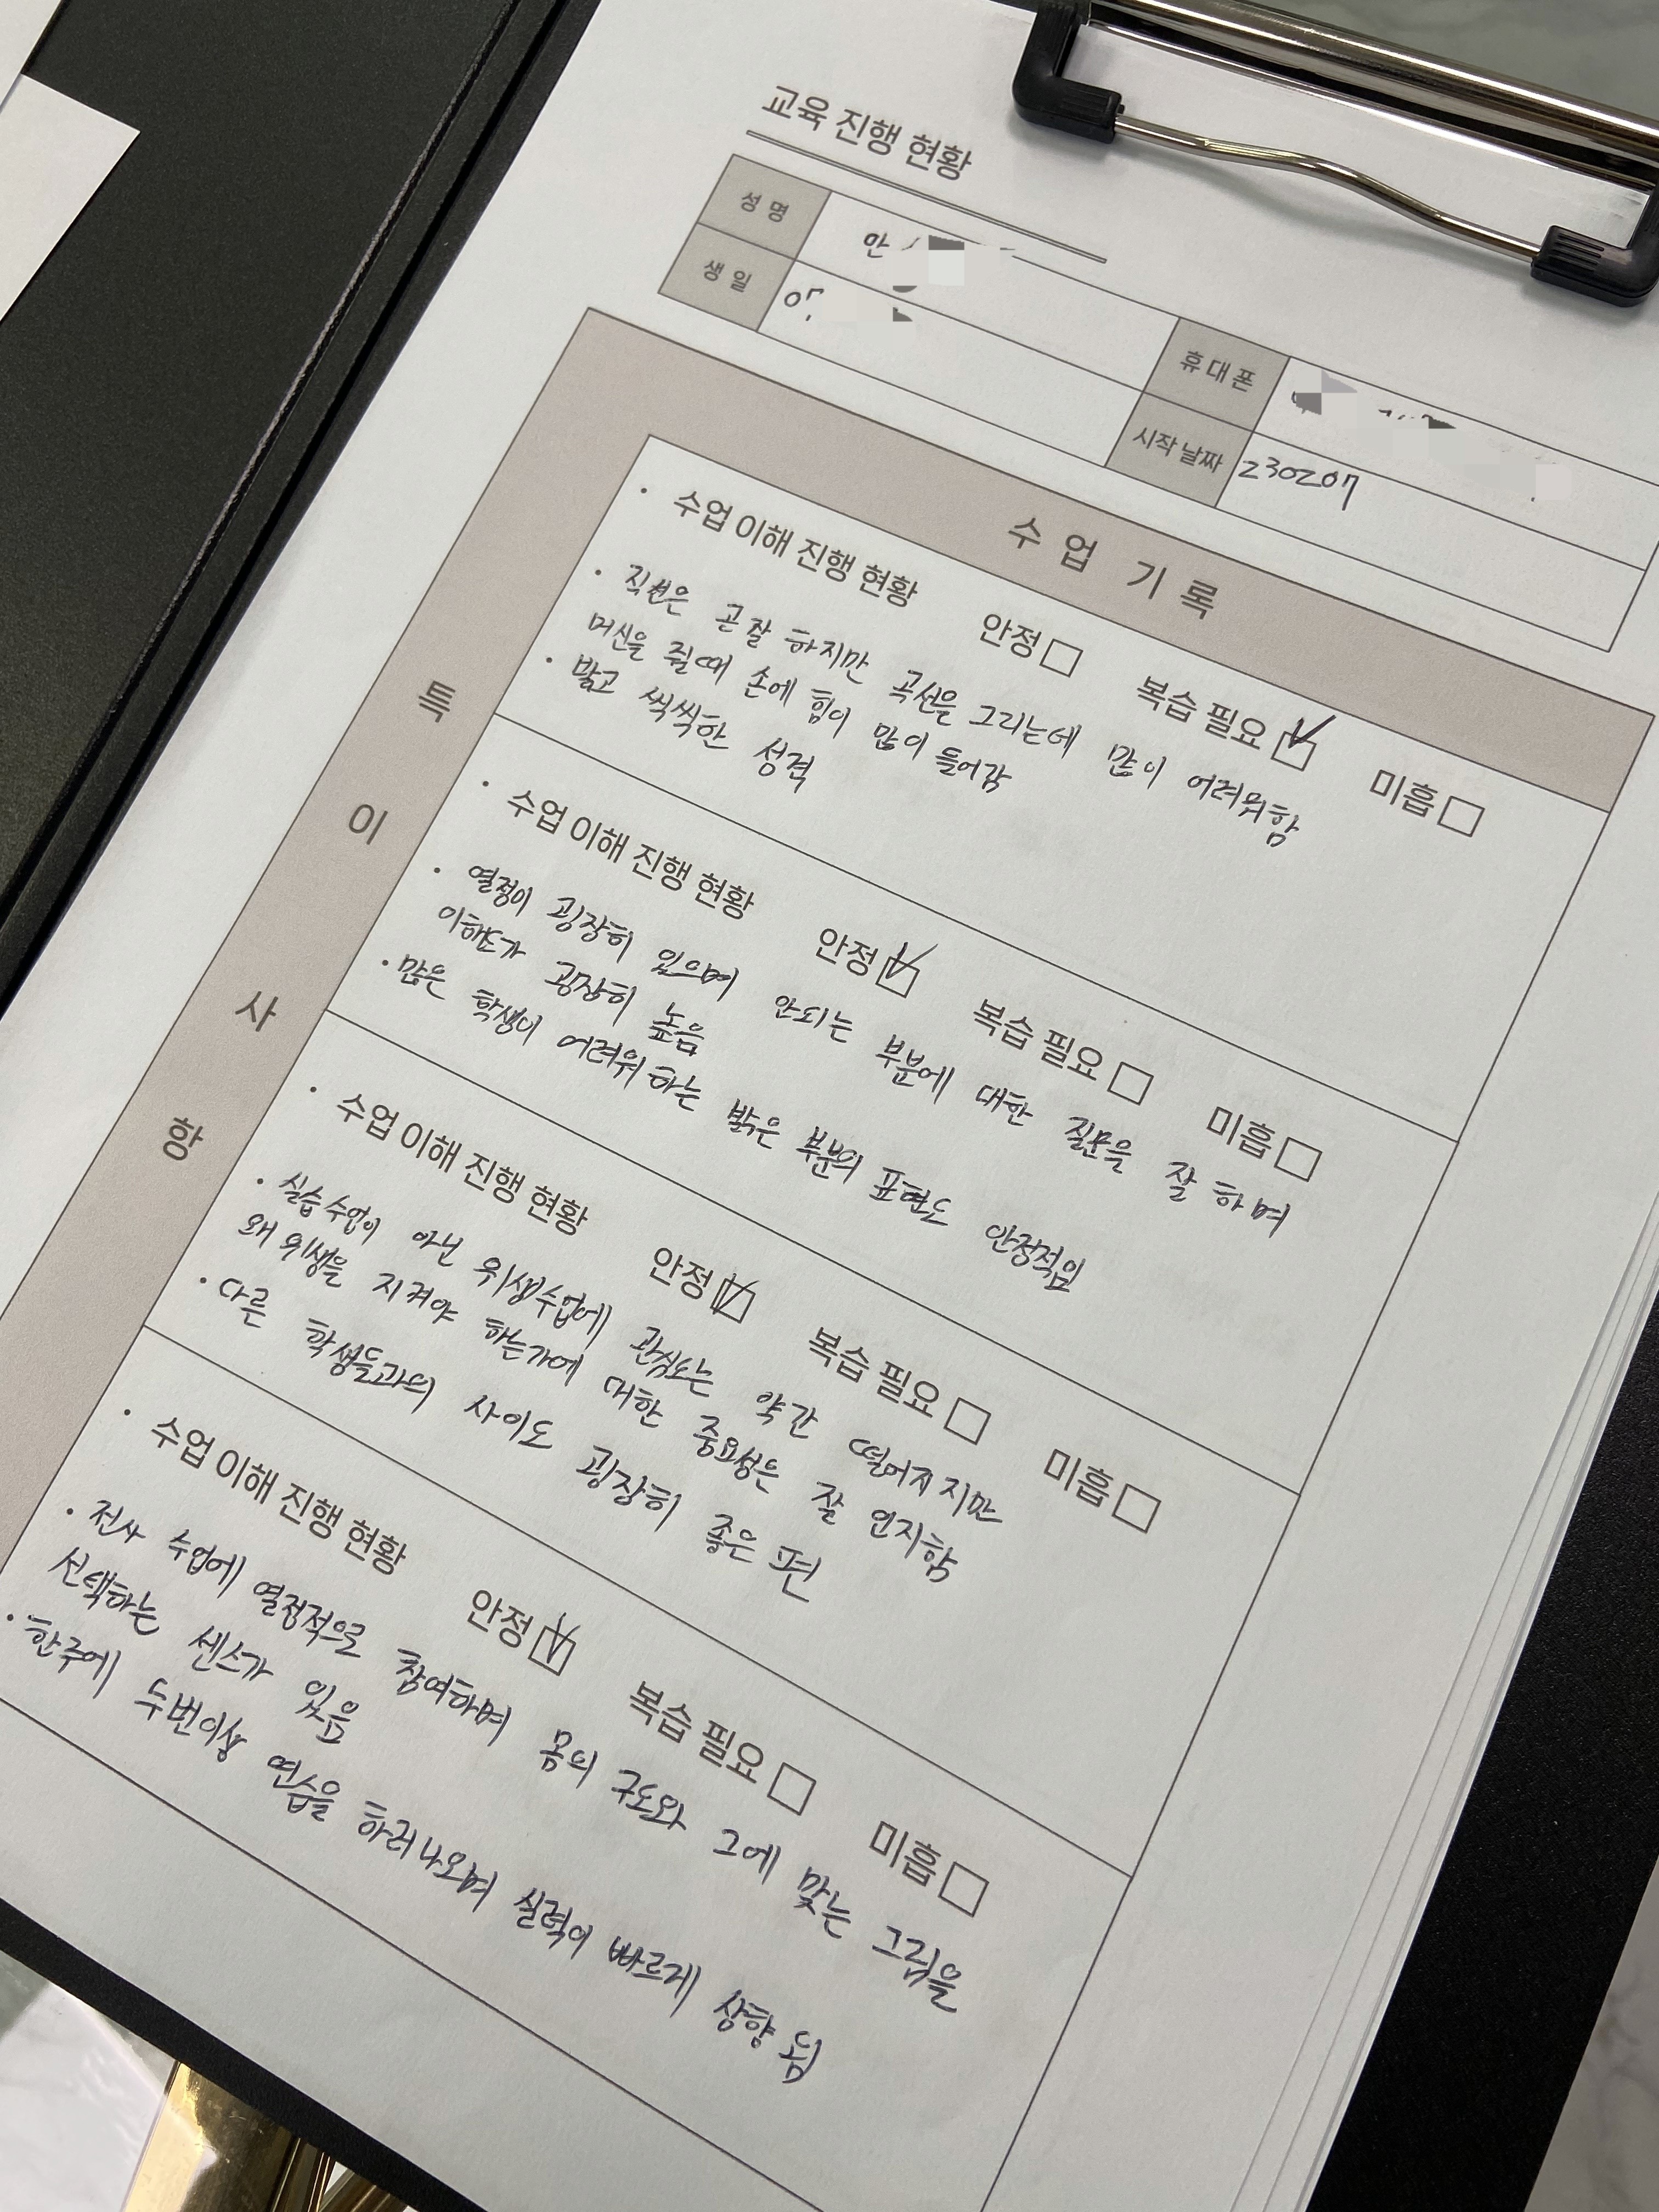 교육 진행 현황
성 명
생 일
휴 대 폰
시작 날짜 230207
수 업 기 록
특 이 사 항
· 수업 이해 진행 현황 안정 □ 복습 필요 ☑ 미흡 □
· 직선은 곧잘 하지만 곡선을 그리는데 많이 어려워함
머신을 쥘때 손에 힘이 많이 들어감
· 밝고 씩씩한 성격
· 수업 이해 진행 현황 안정 ☑ 복습 필요 □ 미흡 □
· 열정이 굉장히 있으며 안되는 부분에 대한 질문을 잘 하며
이해도가 굉장히 높음
· 많은 학생이 어려워 하는 밝은 부분의 표현도 안정적임
· 수업 이해 진행 현황 안정 ☑ 복습 필요 □ 미흡 □
· 실습 수업이 아닌 위생수업에 관심도는 약간 떨어지지만
왜 위생을 지켜야 하는가에 대한 중요성은 잘 인지함
· 다른 학생들과의 사이도 굉장히 좋은 편
· 수업 이해 진행 현황 안정 ☑ 복습 필요 □ 미흡 □
· 전사 수업에 열정적으로 참여하며 몸의 구도와 그에 맞는 그림을
선택하는 센스가 있음
· 한주에 두번이상 연습을 하러 나오며 실력이 빠르게 상향 됨